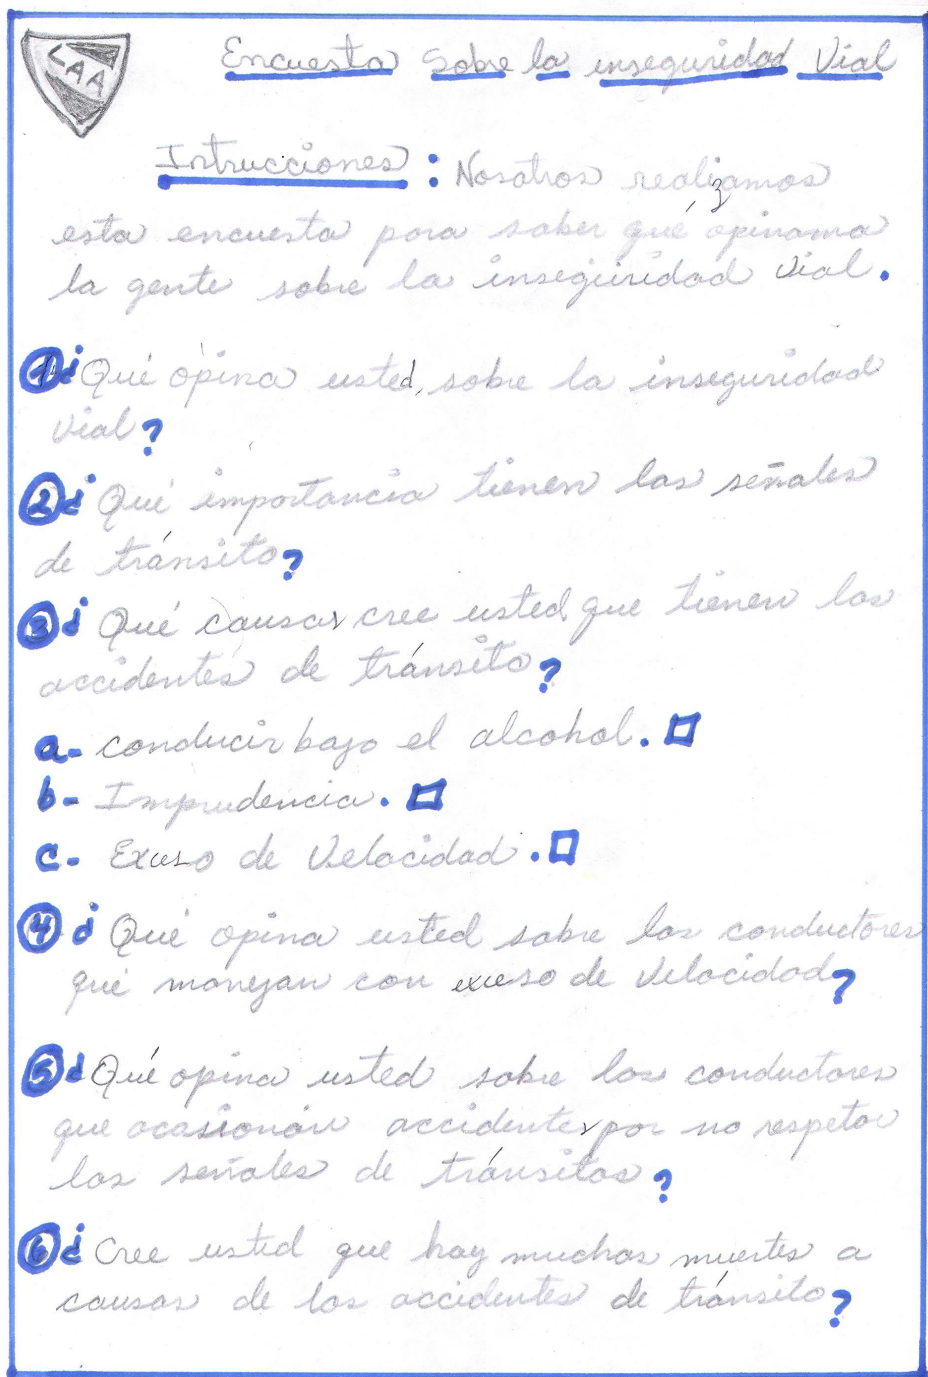 LAA
Encuesta Sobre la inseguridad Vial
Intrucciones: Nosotros realizamos
esta encuesta para saber qué opinama
la gente sobre la inseguridad vial.
1 ¿Qué opina usted, sobre la inseguridad
vial?
2 ¿Qué importancia tienen las señales
de tránsito?
3 ¿Qué causas cree usted que tienen los
accidentes de tránsito?
a- conducir bajo el alcohol. □
b- Imprudencia. □
c- Exceso de Velocidad. □
4 ¿Qué opina usted sobre los conductores
qué manejan con exceso de Velocidad?
5 ¿Qué opina usted sobre los conductores
que ocasionan accidentes por no respetar
las señales de tránsitos?
6 ¿Cree usted que hay muchas muertes a
causas de los accidentes de tránsito?